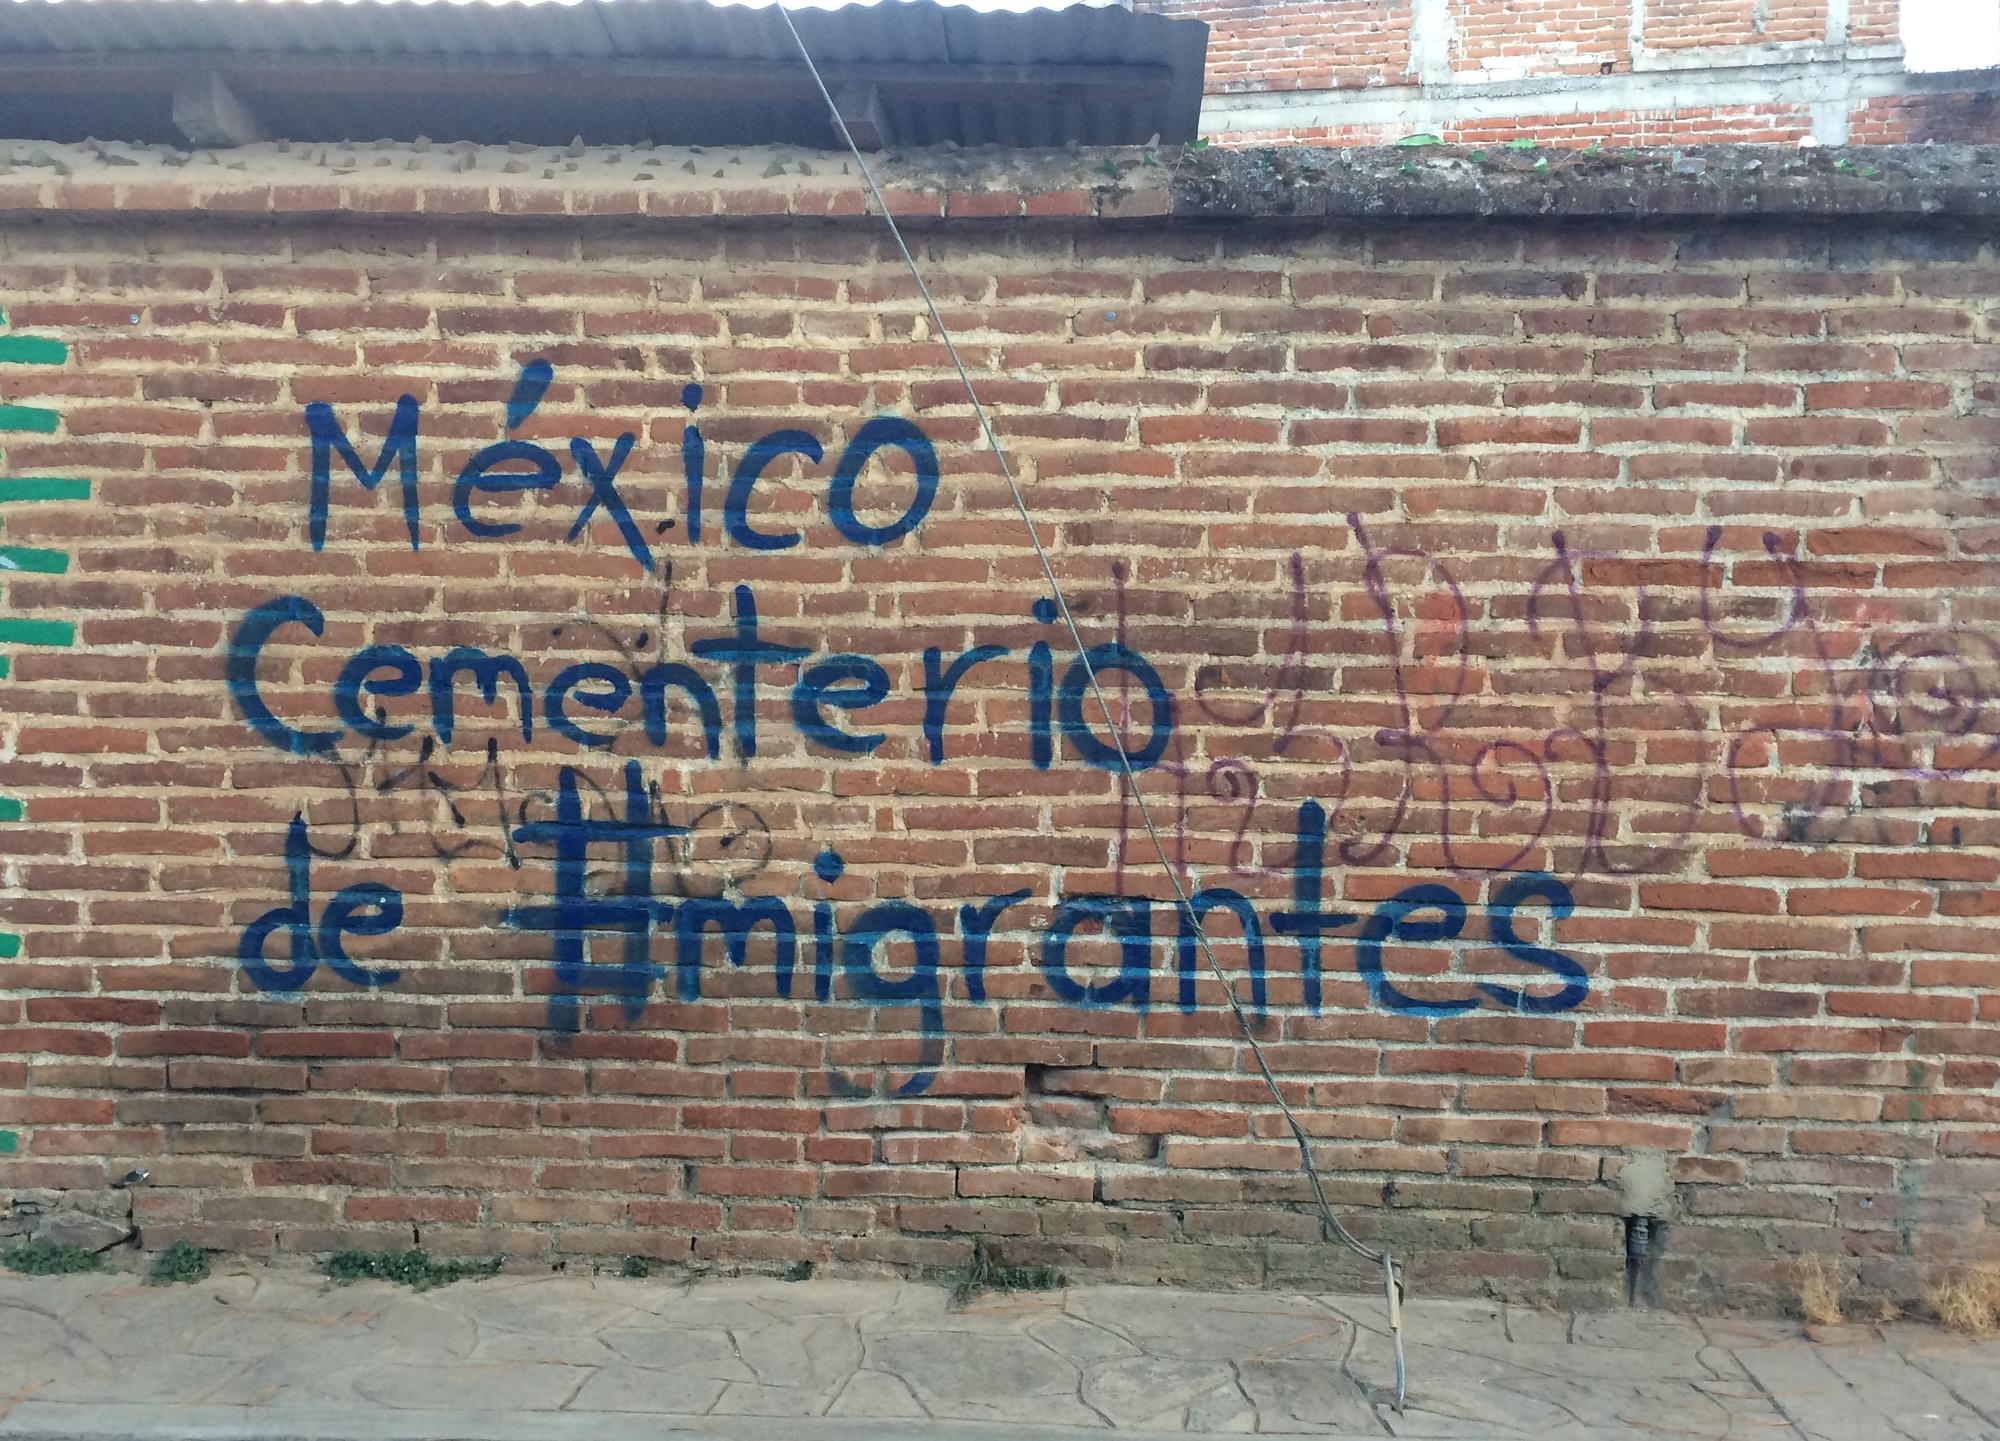 México
Cementerio
de Emigrantes